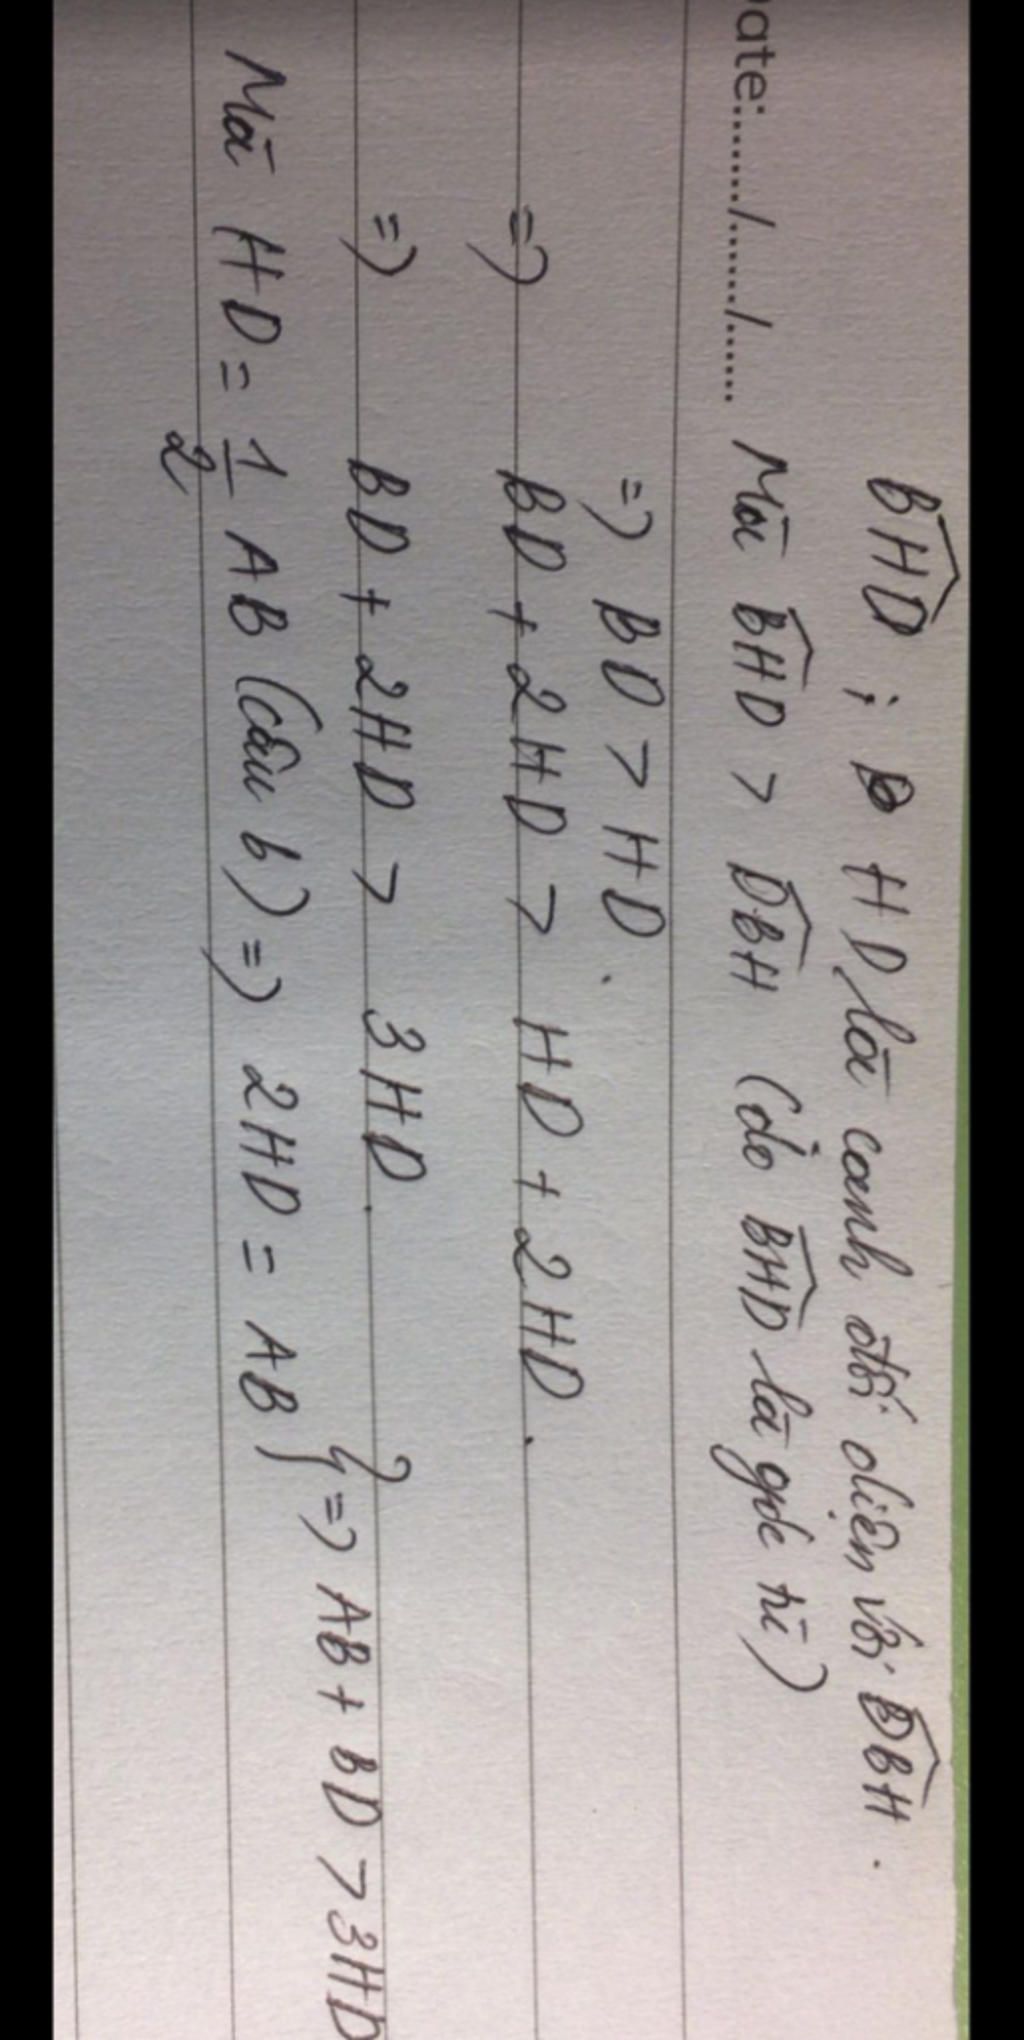 BHD ; HD là cạnh đối diện với DBH.
Date:....../....../...... Mà BHD > DBH (do BHD là góc tù)
=> BD > HD.
=> BD + 2HD > HD + 2HD.
=> BD + 2HD > 3HD.
} => AB + BD > 3HD
Mà HD = 1/2 AB (câu b) => 2HD = AB